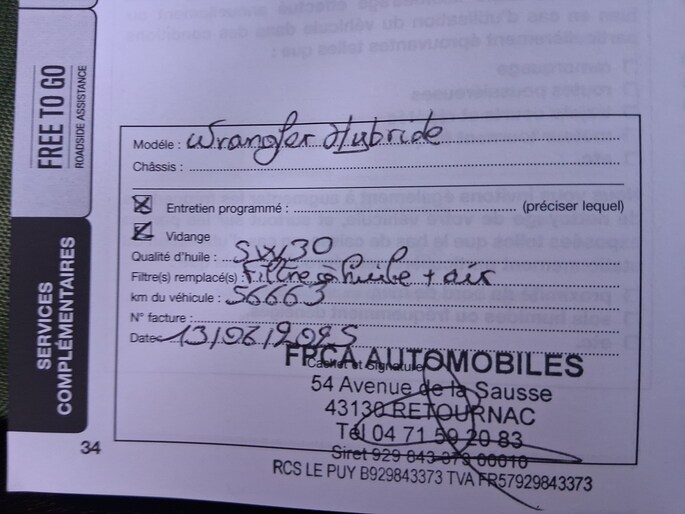 FREE TO GO
ROADSIDE ASSISTANCE
SERVICES
COMPLÉMENTAIRES
34
Modèle : Wrangler Hybride
Châssis :
Entretien programmé : (préciser lequel)
Vidange
Qualité d'huile : 5W30
Filtre(s) remplacé(s) : Filtre à huile + air
km du véhicule : 56663
N° facture :
Date 13/06/2025
Cachet et Signature
FPCA AUTOMOBILES
54 Avenue de la Sausse
43130 RETOURNAC
Tél 04 71 59 20 83
Siret 929 843 373 00010
RCS LE PUY B929843373 TVA FR57929843373